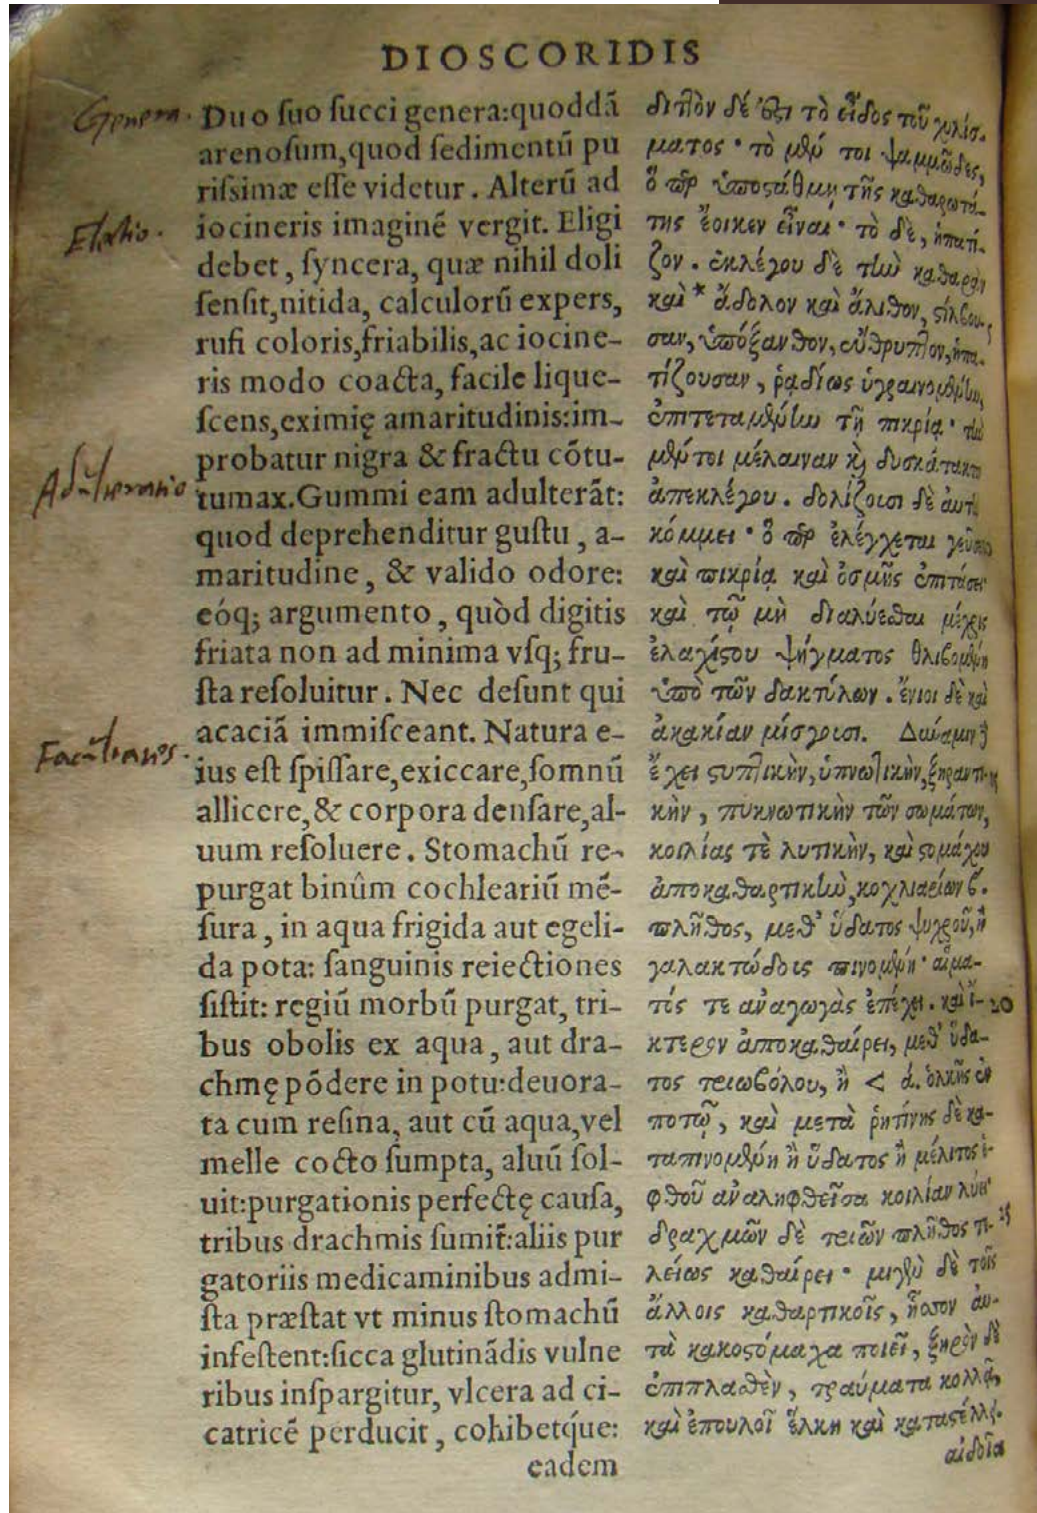 DIOSCORIDIS
Genera.
Duo suo succi genera:quoddã
arenosum,quod sedimentũ pu
rissimæ esse videtur. Alterũ ad
iocineris imaginẽ vergit. Eligi
debet, syncera, quæ nihil doli
sensit,nitida, calculorũ expers,
rufi coloris,friabilis,ac iocine-
ris modo coacta, facile lique-
scens,eximię amaritudinis:im-
probatur nigra & fractu cõtu-
tumax.Gummi eam adulterãt:
quod deprehenditur gustu, a-
maritudine, & valido odore:
eóq; argumento, quòd digitis
friata non ad minima vsq; fru-
sta resoluitur. Nec desunt qui
acaciã immisceant. Natura e-
ius est spissare,exiccare,somnũ
allicere,& corpora densare,al-
uum resoluere. Stomachũ re-
purgat binûm cochleariũ mẽ-
sura, in aqua frigida aut egeli-
da pota: sanguinis reiectiones
sistit: regiũ morbũ purgat, tri-
bus obolis ex aqua, aut dra-
chmę põdere in potu:deuora-
ta cum resina, aut cũ aqua,vel
melle cocto sumpta, aluũ sol-
uit:purgationis perfectę causa,
tribus drachmis sumit̃:aliis pur
gatoriis medicaminibus admi-
sta præstat vt minus stomachũ
infestent:sicca glutinãdis vulne
ribus inspargitur, vlcera ad ci-
catricẽ perducit, cohibetq́ue:
eadem
διπλὸν δέ ἐστι τὸ εἶδος τοῦ χυλίσ-
ματος· τὸ μέν τοι ψαμμῶδες,
ὃ περ ὑποστάθμη τῆς καθαρωτά-
της ἔοικεν εἶναι· τὸ δὲ, ἡπατί-
ζον. ἐκλέγου δὲ τὴν καθαρὰν
καὶ * ἄδολον καὶ ἄλιθον, στίλβου-
σαν, ὑπόξανθον, εὔθρυπτον, ἡπα-
τίζουσαν, ῥᾳδίως ὑγραινομένην,
ἐπιτεταμένην τῇ πικρίᾳ· τὴν
μέντοι μέλαιναν καὶ δυσκάτακτο
ἀπεκλέγου. δολίζουσι δὲ αὐτὴ
κόμμει· ὃ περ ἐλέγχεται γεύσει
καὶ πικρίᾳ καὶ ὀσμῆς ἐπιτάσει
καὶ τῷ μὴ διαλύεσθαι μέχρις
ἐλαχίστου ψήγματος θλιβομένη
ὑπὸ τῶν δακτύλων. ἔνιοι δὲ καὶ
ἀκακίαν μίσγουσι. Δύναμιν δὲ
ἔχει στυπτικὴν, ὑπνωτικὴν, ξηραντι-
κὴν, πυκνωτικὴν τῶν σωμάτων,
κοιλίας τὲ λυτικὴν, καὶ στομάχου
ἀποκαθαρτικὴν, κοχλιαρίων β.
πλῆθος, μεθ' ὕδατος ψυχροῦ, ἢ
γαλακτώδους πινομένη· αἵμα-
τός τε ἀναγωγὰς ἐπέχει. καὶ ἴ- 20
κτερον ἀποκαθαίρει, μεθ' ὕδα-
τος τριωβόλου, ἢ < ά. ὁλκῆς ἐν
ποτῷ, καὶ μετὰ ῥητίνης δὲ κα-
ταπινομένη ἢ ὕδατος ἢ μέλιτος ἑ-
φθοῦ ἀναληφθεῖσα κοιλίαν λύει
δραχμῶν δὲ τριῶν πλῆθος τε- 25
λείως καθαίρει· μιγὲν δὲ τοῖς
ἄλλοις καθαρτικοῖς, ἧσσον αὐ-
τὰ κακοστόμαχα ποιεῖ, ξηρὸν δὲ
ἐπιπλασθὲν, τραύματα κολλᾷ,
καὶ ἐπουλοῖ ἕλκη καὶ καταστέλλει.
αἰδοῖα